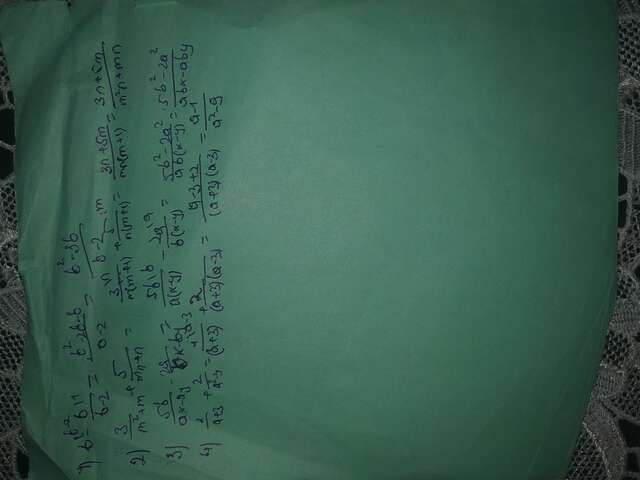 1) b^{\b-2} - \frac{b^{\1}}{b-2} = \frac{b^2-2b-b}{a-2} = \frac{b^2-3b}{b-2}
2) \frac{3}{m^2+m} + \frac{5}{mn+n} = \frac{3^{\n}}{m(m+1)} + \frac{5^{\m}}{n(m+1)} = \frac{3n+5m}{mn(m+1)} = \frac{3n+5m}{m^2n+mn}
3) \frac{5b}{ax-ay} - \frac{2a}{bx-by} = \frac{5b^{\b}}{a(x-y)} - \frac{2a^{\a}}{b(x-y)} = \frac{5b^2-2a^2}{ab(x-y)} = \frac{5b^2-2a^2}{abx-aby}
4) \frac{1}{a+3} + \frac{2}{a^2-9} = \frac{1^{\a-3}}{(a+3)} + \frac{2}{(a+3)(a-3)} = \frac{a-3+2}{(a+3)(a-3)} = \frac{a-1}{a^2-9}